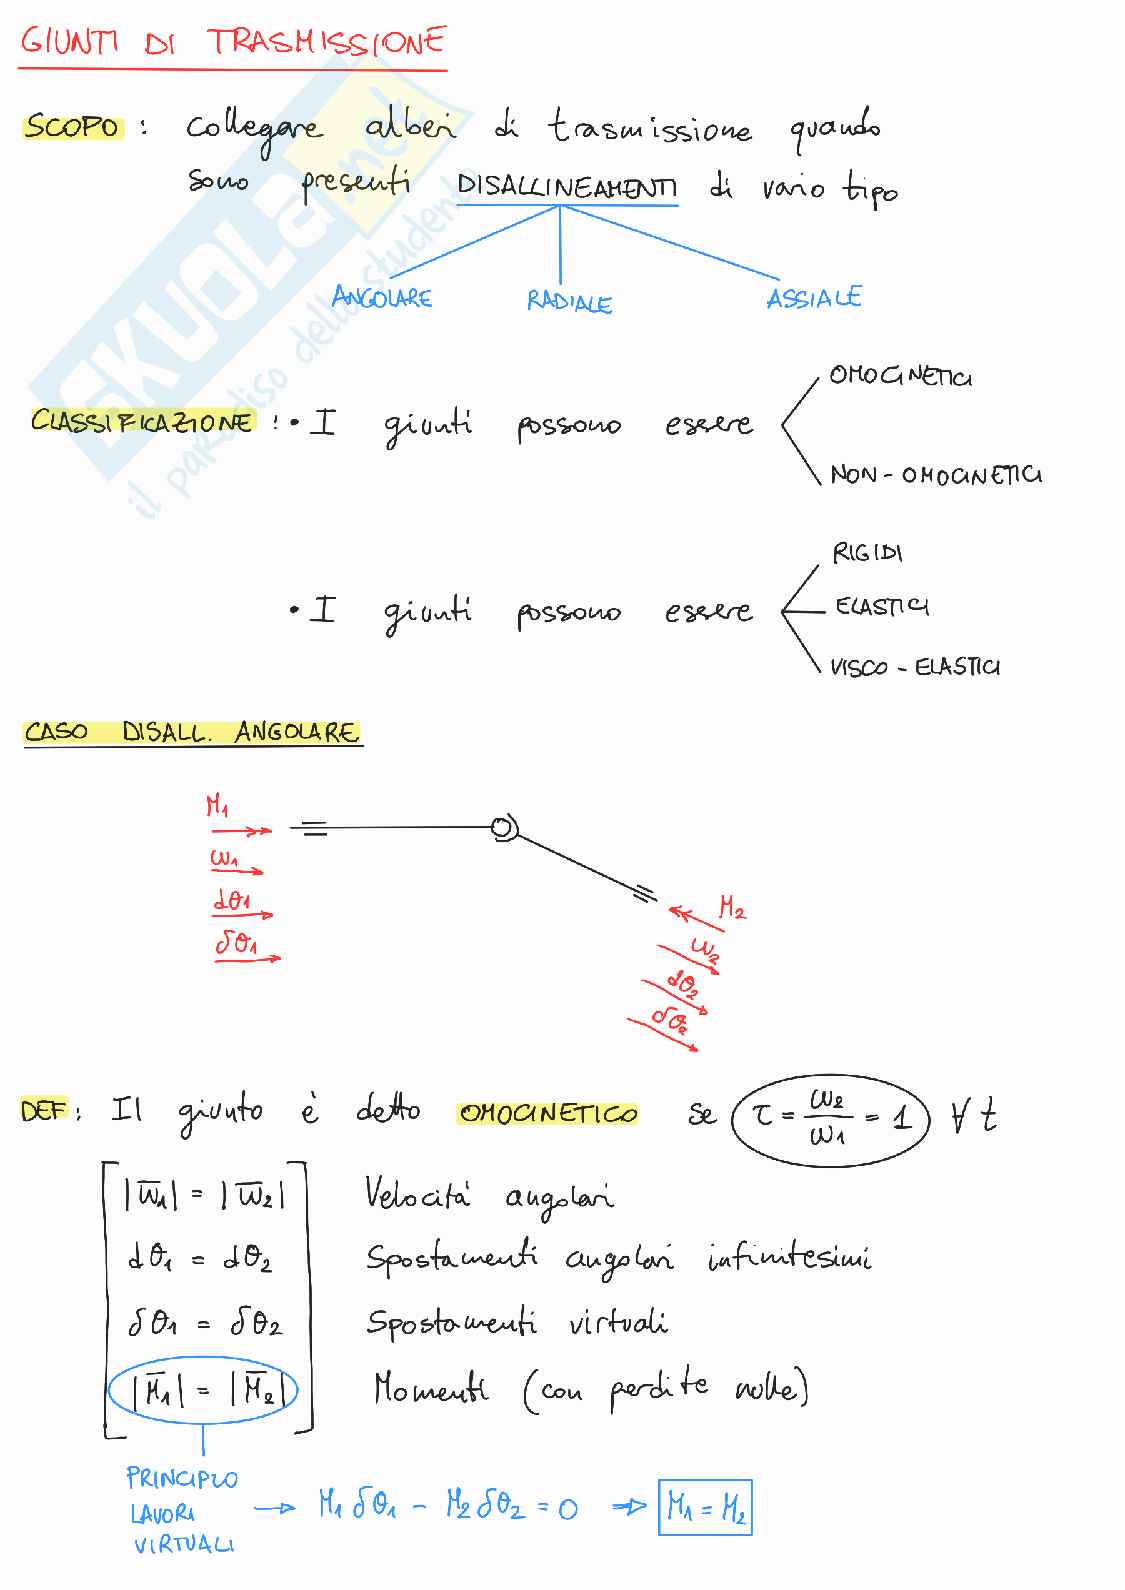 GIUNTI DI TRASMISSIONE
SCOPO : Collegare alberi di trasmissione quando
sono presenti DISALLINEAMENTI di vario tipo
ANGOLARE RADIALE ASSIALE
OMOCINETICI
CLASSIFICAZIONE : • I giunti possono essere
NON - OMOCINETICI
RIGIDI
• I giunti possono essere ELASTICI
VISCO - ELASTICI
CASO DISALL. ANGOLARE
M₁
ω₁
dθ₁
δθ₁
M₂
ω₂
dθ₂
δθ₂
DEF : Il giunto è detto OMOCINETICO se τ = ω₂/ω₁ = 1 ∀ t
|ω̅₁| = |ω̅₂| Velocità angolari
dθ₁ = dθ₂ Spostamenti angolari infinitesimi
δθ₁ = δθ₂ Spostamenti virtuali
|M̅₁| = |M̅₂| Momenti (con perdite nulle)
PRINCIPIO
LAVORI → M₁ δθ₁ - M₂ δθ₂ = 0 ⇒ M₁ = M₂
VIRTUALI
SKUOLA.net
il paradiso dello studente